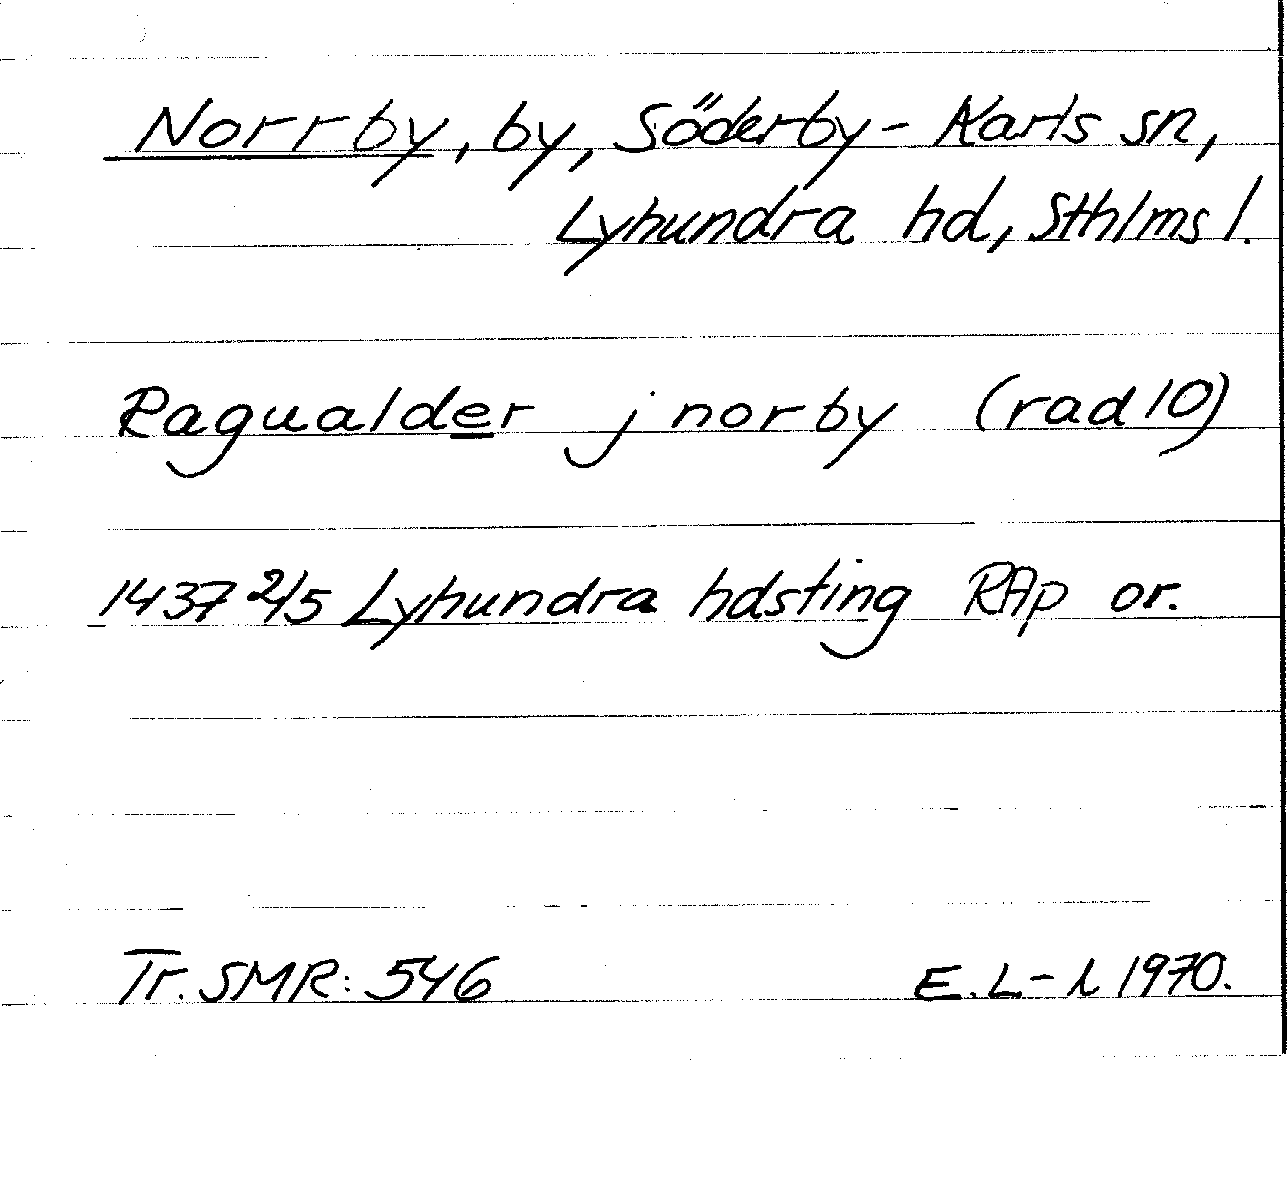 Norrby, by, Söderby-Karls sn,
Lyhundra hd, Sthlms l.
Ragualder j norby (rad 10)
1437 2/5 Lyhundra hdsting RAp or.
Tr. SMR: 546 E.L-l 1970.